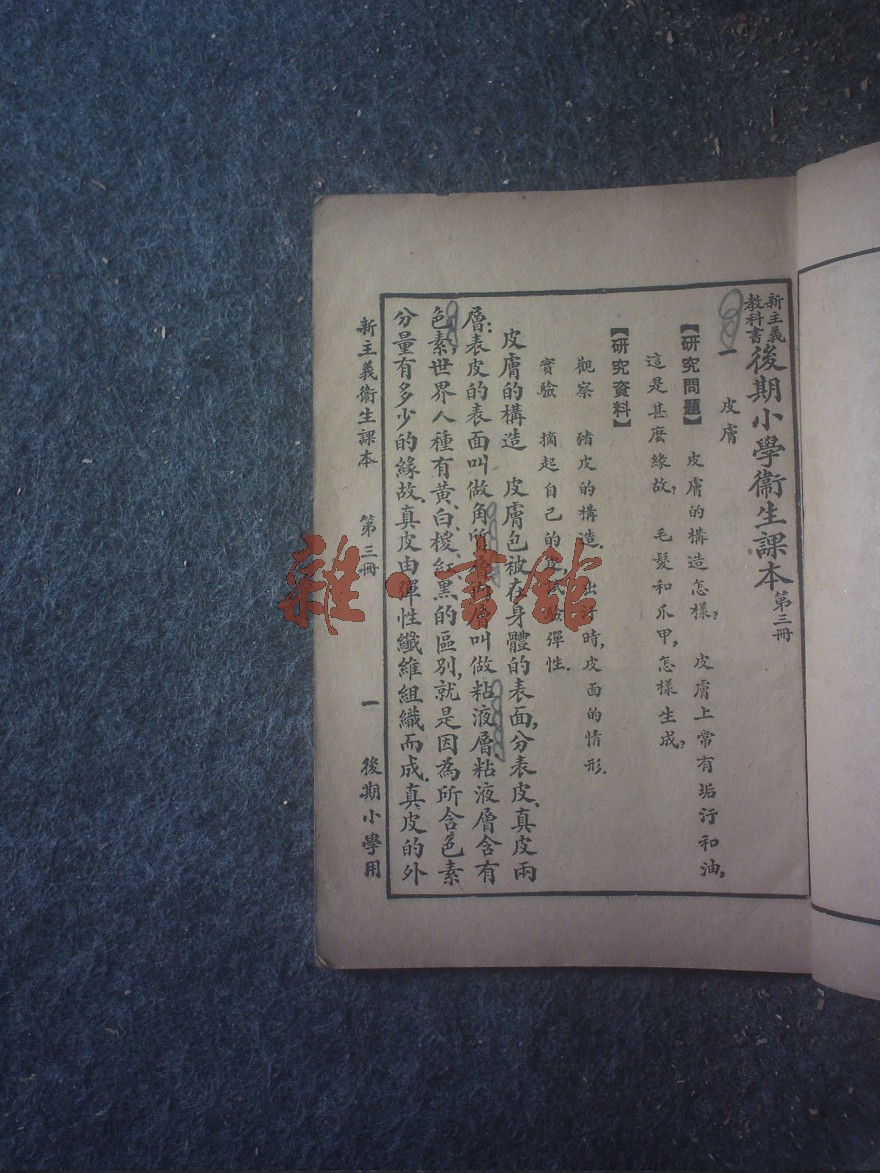 新主義教科書 後期小學衞生課本 第三冊
一 皮膚
【研究問題】 皮膚的構造怎樣？ 皮膚上常有垢汙和油，
這是甚麼緣故？ 毛髮和爪甲，怎樣生成？
【研究資料】
觀察 豬皮的構造．出汗時，皮面的情形．
實驗 摘起自己的皮，彈性．
皮膚的構造 皮膚包被在身體的表面，分表皮、真皮兩
層：表皮的表面叫做角質層，內層叫做粘液層．粘液層含有
色素，世界人種有黃、白、椶、紅、黑的區別，就是因為所含色素
分量有多少的緣故．真皮由彈性纖維組織而成．真皮的外
新主義衞生課本 第三冊 一 後期小學用
雜·書館